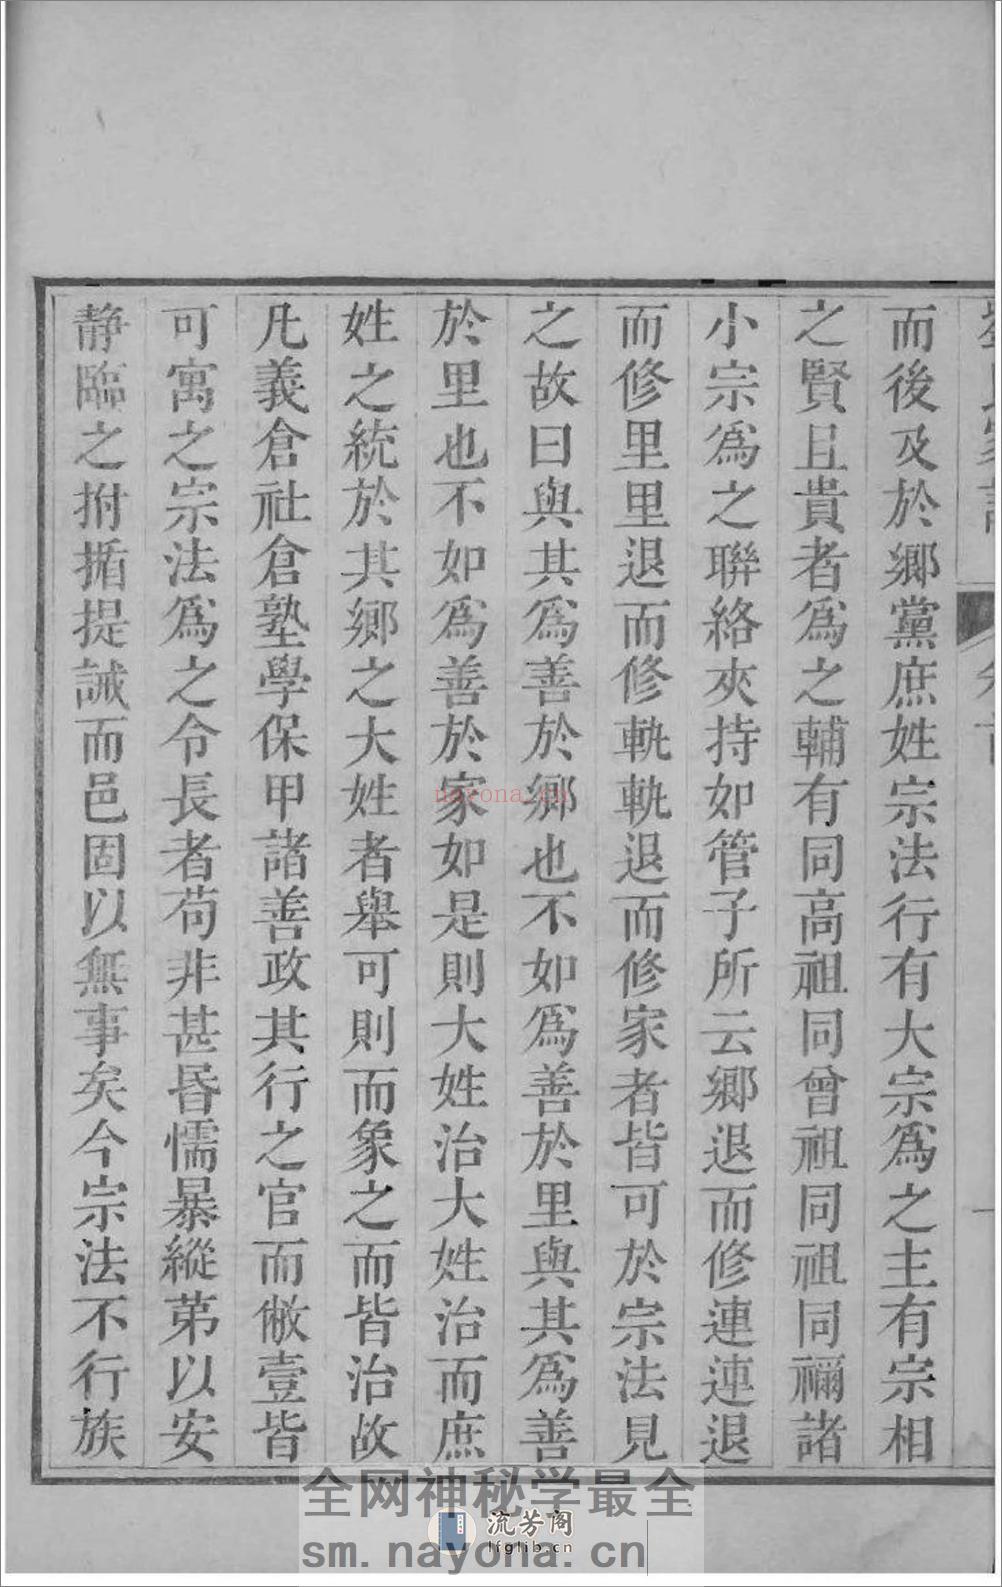 而後及於鄉黨庶姓宗法行有大宗爲之主有宗相
之賢且貴者爲之輔有同高祖同曾祖同祖同禰諸
小宗爲之聯絡夾持如管子所云鄉退而修連連退
而修里里退而修軌軌退而修家者皆可於宗法見
之故曰與其爲善於鄉也不如爲善於里與其爲善
於里也不如爲善於家如是則大姓治大姓治而庶
姓之統於其鄉之大姓者舉可則而象之而皆治故
凡義倉社倉塾學保甲諸善政其行之官而敝壹皆
可寓之宗法爲之令長者苟非甚昬懦暴縱苐以安
静臨之拊揗提誡而邑固以無事矣今宗法不行族
nayona.cn
全网神秘学最全
流芳阁
lfglib.cn
sm.nayona.cn